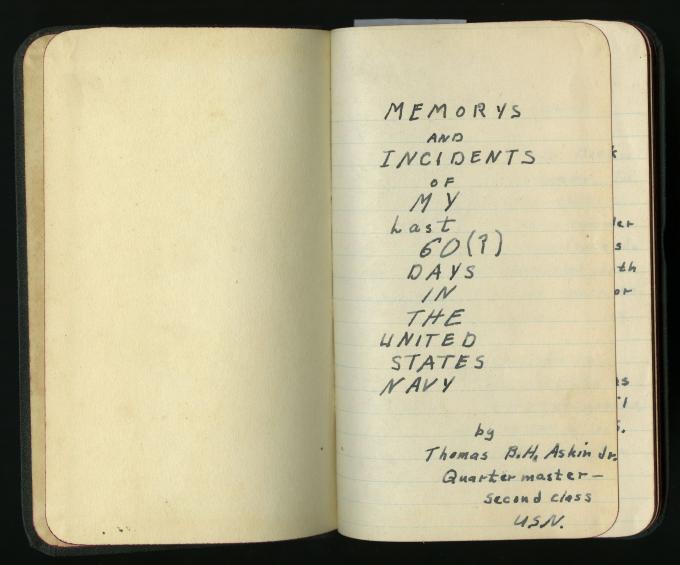 MEMORYS
AND
INCIDENTS
OF
MY
Last
60(?)
DAYS
IN
THE
UNITED
STATES
NAVY
by
Thomas B.H. Askin Jr.
Quartermaster—
Second class
U.S.N.